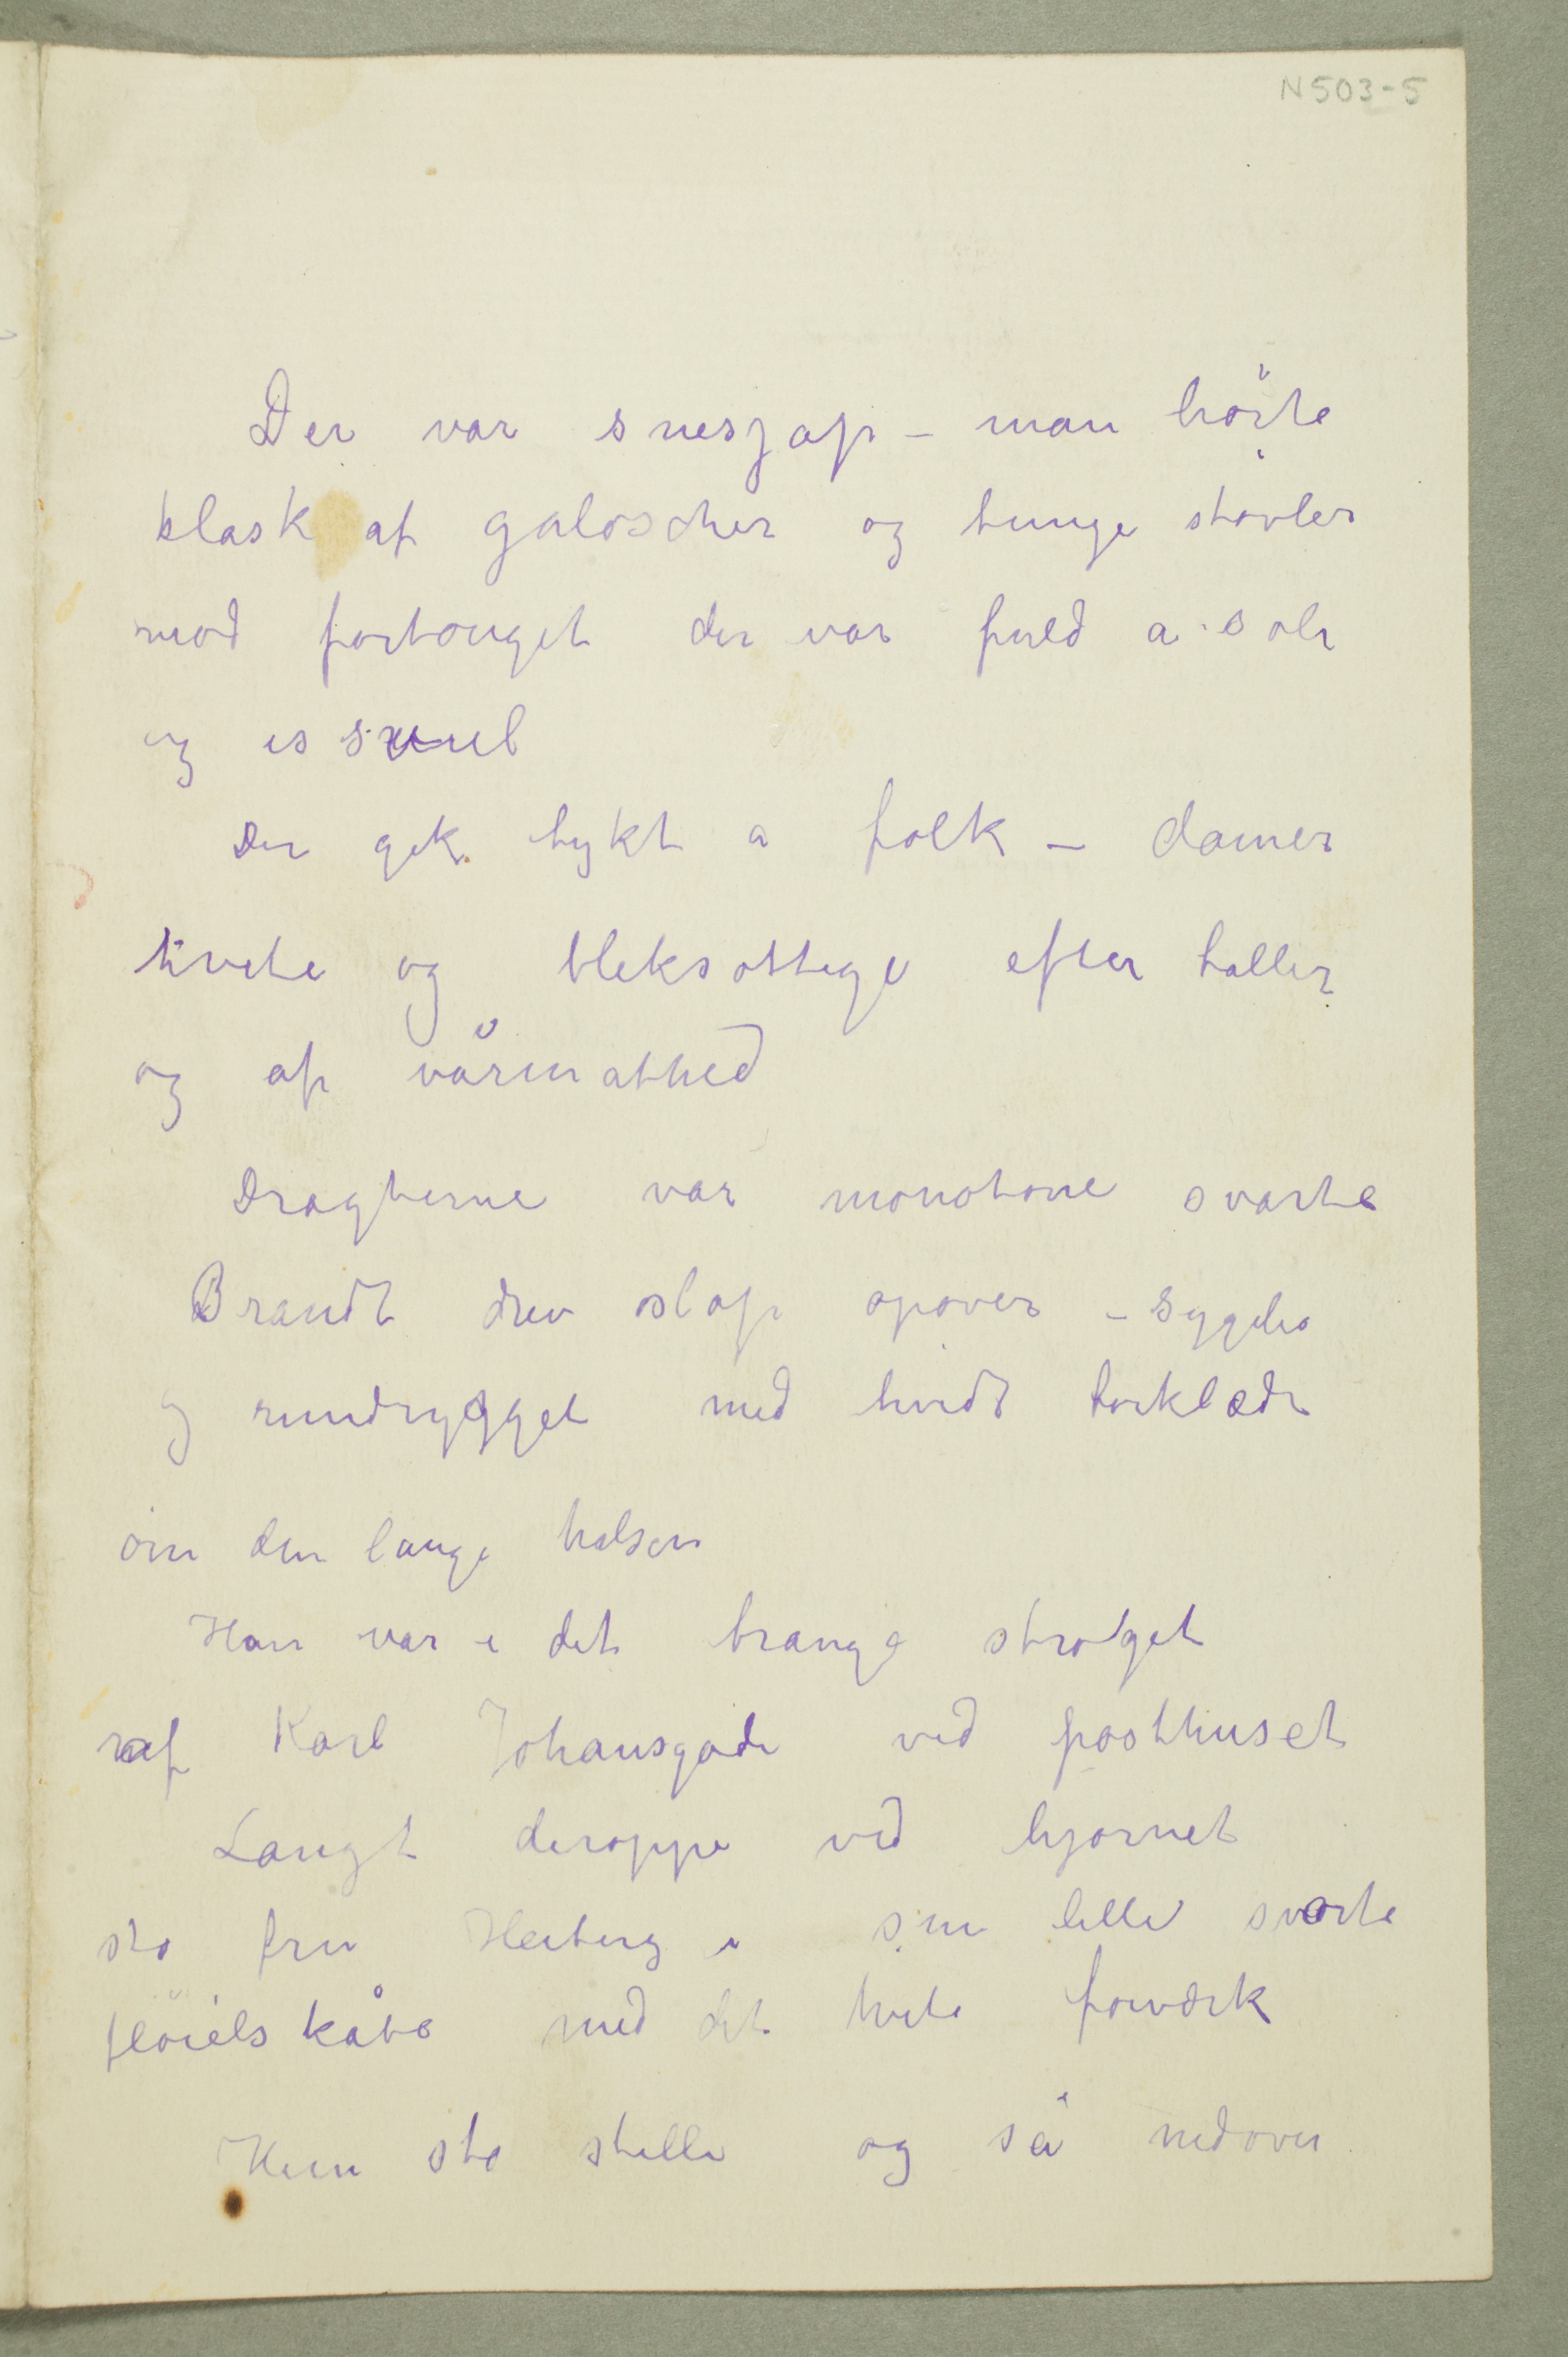 N503-5
Der var snesjap – man hörte
klask af galoscher og tunge støvler
mod fortouget der var fuld a sole
og is
Der gik tykt a folk – damer
hvite og bleksottige efter baller
og af vårmathed
Dragterne var monotone svarte
Brandt drev slap opover – sygelig
og rundrygget med hvidt tørklæde
om den lange halsen
Han var i det trange strøget
af Karl Johansgade ved posthuset
Langt deroppe ved hjørnet
sto fru Heiberg i sin lille svarte
flöielskåbe med det hvite forværk
Hun sto stille og så nedover